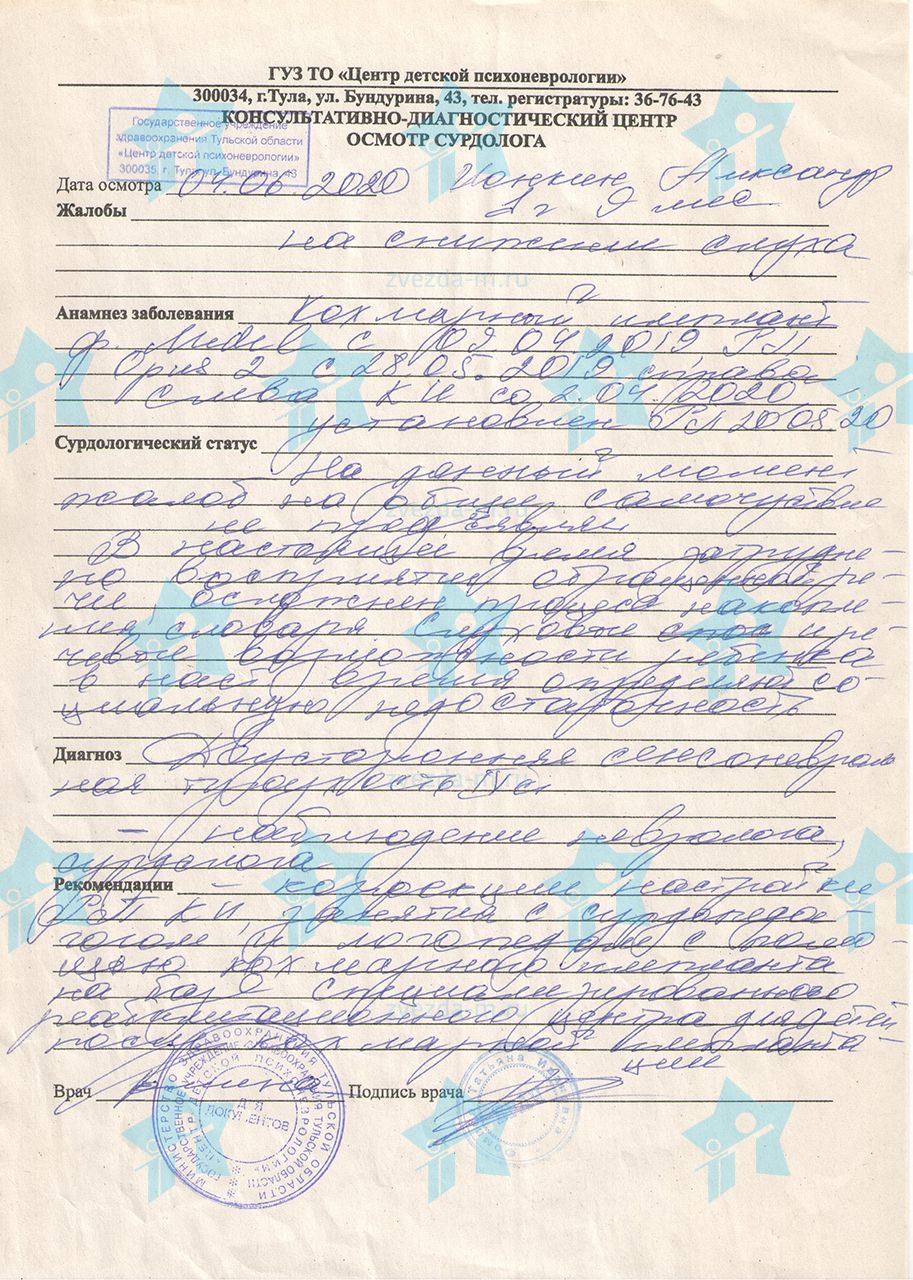 ГУЗ ТО «Центр детской психоневрологии»
300034, г.Тула, ул. Бундурина, 43, тел. регистратуры: 36-76-43
КОНСУЛЬТАТИВНО-ДИАГНОСТИЧЕСКИЙ ЦЕНТР
ОСМОТР СУРДОЛОГА
Государственное учреждение
здравоохранения Тульской области
«Центр детской психоневрологии»
300035, г. Тула ул. Бундурина, 43
Дата осмотра 04.06.2020 Ионкин Александр
1 г 9 мес
Жалобы
на снижение слуха
zvezda-m.ru
Анамнез заболевания Кохлеарный имплант
с 09.04.2019
2 с 28.05.2019 справа
слева КИ со 2.04.2020
установлен РП 20.05.20
Сурдологический статус
На данный момент
жалоб на общее самочувствие
не
В настоящее время затрудне-
но восприятие обращенной ре-
чи осложнен процесс накопле-
ния словаря слуховые и ре-
чевые возможности ребенка
в наст время определяют со-
циальную недостаточность
Диагноз Двусторонняя сенсоневраль
ная тугоухость IV ст
zvezda-m.ru
– наблюдение невролога,
сурдолога
Рекомендации – коррекции настройки
РП КИ, занятия с сурдопеда-
гогом и логопедом с помо-
щью кохлеарного импланта
на базе специализированного
zvezda-m.ru
реабилитационного центра для детей
после кохлеарной имплантации
Врач Подпись врача
МИНИСТЕРСТВО ЗДРАВООХРАНЕНИЯ ТУЛЬСКОЙ ОБЛАСТИ
ДЛЯ
ДОКУМЕНТОВ
Татьяна